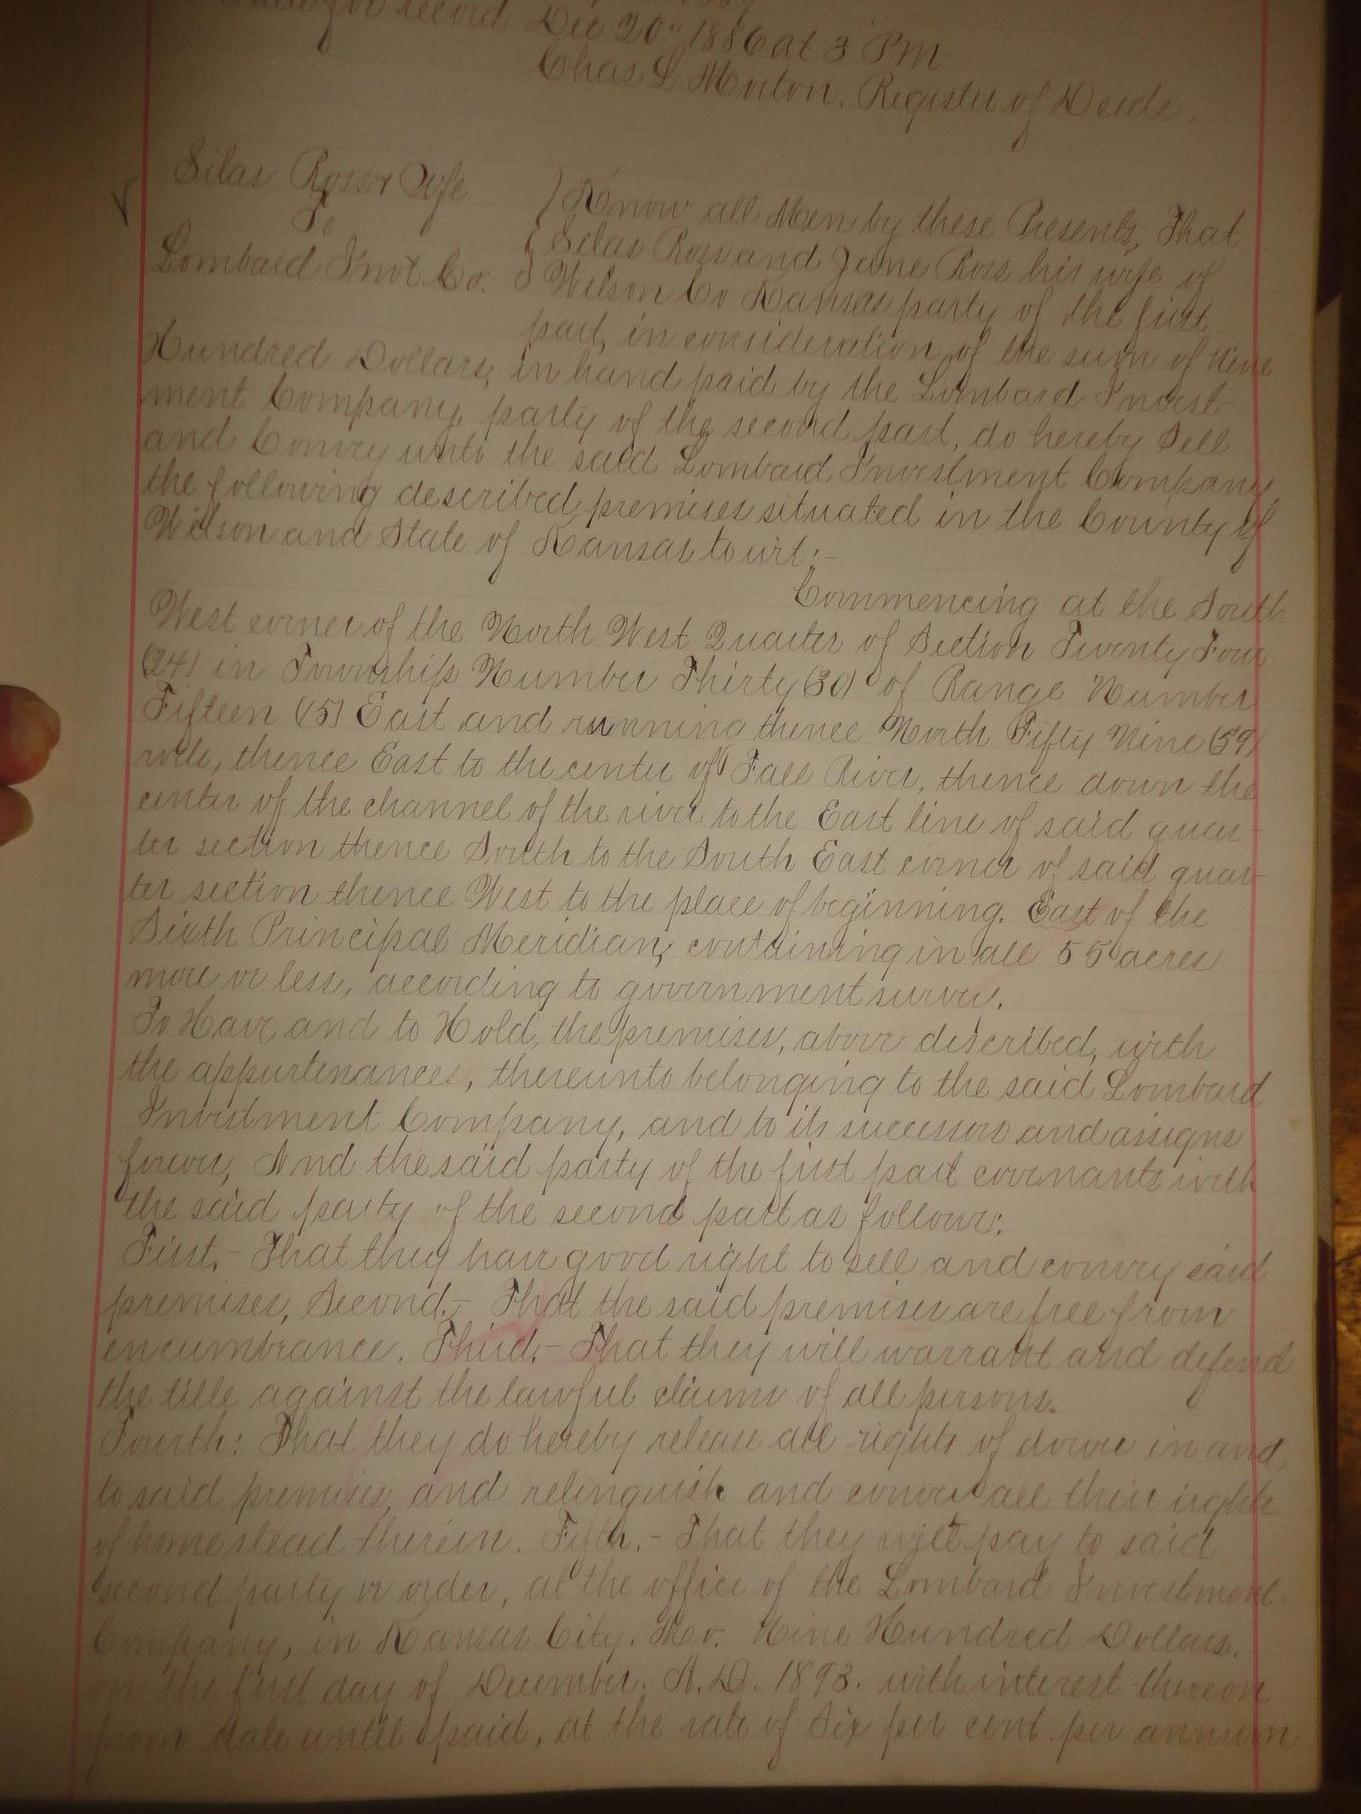 for record Dec 20" 1886 at 3 PM
Chas L Morton. Register of Deeds.
Silas Ross & Wife
To
Lombard Invt. Co.
Know all Men by these Presents, That
Silas Ross and Jane Ross his wife of
Wilson Co Kansas party of the first
part, in consideration of the sum of Nine
Hundred Dollars, in hand paid by the Lombard Invest-
ment Company, party of the second part, do hereby Sell
and Convey unto the said Lombard Investment Company,
the following described premises situated in the County of
Wilson and State of Kansas to wit:-
Commencing at the South
West corner of the North West Quarter of Section Twenty Four
(24) in Township Number Thirty (30) of Range Number
Fifteen (15) East and running thence North Fifty Nine (59)
rods, thence East to the center of Fall River, thence down the
center of the channel of the river to the East line of said quar-
ter section thence South to the South East corner of said quar-
ter section thence West to the place of beginning. East of the
Sixth Principal Meridian, containing in all 55 acres
more or less, according to government survey.
To Have and to Hold, the premises, above described, with
the appurtenances, thereunto belonging to the said Lombard
Investment Company, and to its successors and assigns
forever, And the said party of the first part covenants with
the said party of the second part as follows:
First,- That they have good right to sell and convey said
premises, Second.- That the said premises are free from
encumbrance. Third,- That they will warrant and defend
the title against the lawful claims of all persons.
Fourth: That they do hereby release all rights of dower in and
to said premises, and relinquish and convey all their rights
of homestead therein. Fifth.- That they will pay to said
second party or order, at the office of the Lombard Investment
Company, in Kansas City. Mo. Nine Hundred Dollars.
on the first day of December, A.D. 1893. with interest thereon
from date until paid, at the rate of Six per cent. per annum